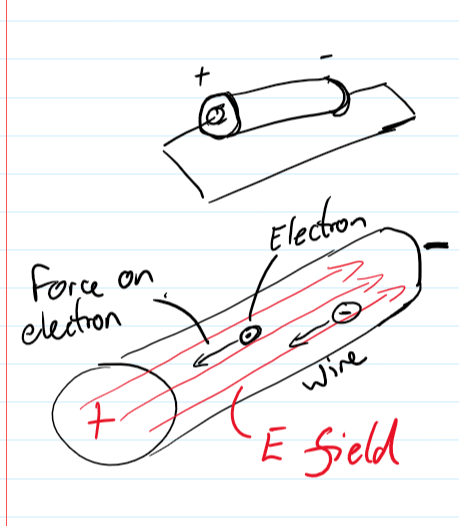 +
-
Electron
-
Force on
electron
-
wire
+
E field